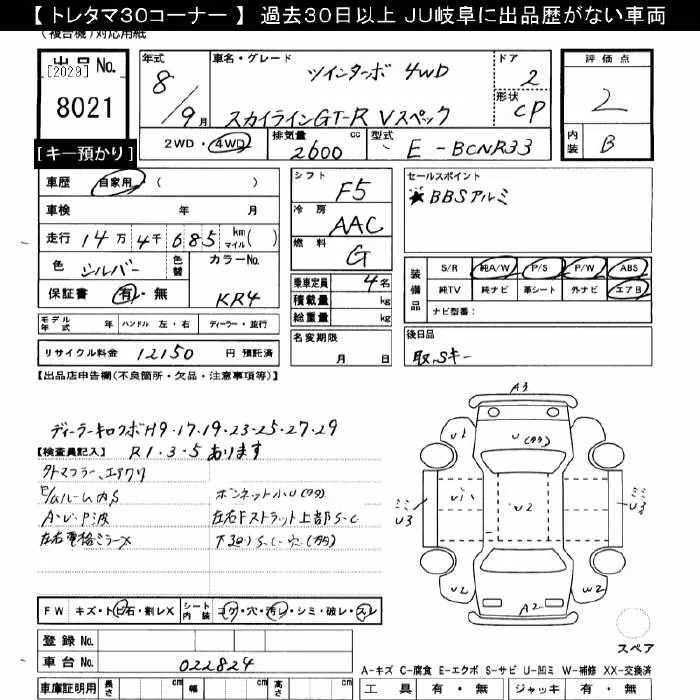 【トレタマ30コーナー】 過去30日以上 JU岐阜に出品歴がない車両
(複合機)対応用紙
出品No.
[2029]
8021
[キー預かり]
年式
8/9月
車名・グレード
ツインターボ 4WD
スカイラインGT-R Vスペック
ドア
2
形状
CP
評価点
2
内装
B
2WD・4WD
排気量
2600 cc
型式
E-BCNR33
車歴 自家用 ( )
車検 年 月
走行 14万4千685 km マイル( )
色 シルバー 色替
カラーNo.
KR4
保証書 有・無
シフト
F5
冷房
AAC
燃料
G
乗車定員 4名
積載量 kg
総重量 kg
名変期限
月 日
セールスポイント
★BBSアルミ
装備品
S/R 純A/W P/S P/W ABS
純TV 純ナビ 革シート 外ナビ エアB
ナビ型番:
後日品
取、Sキー
モデル年式 年 ハンドル 左・右 ディーラー・並行
リサイクル料金 12150 円 預託済
【出品店申告欄(不良箇所・欠品・注意事項等)】
ディーラーキロクボH9・17・19・23・25・27・29
【検査員記入】 R1・3・5あります
外マフラー、エアクリ
ルーム内S
A・U・P・波
左右電格ミラーX
ボンネット小U(タタ)
左右Fストラット上部S・C
下回りS・C・穴(タタ)
A3
U1
U(タタ)
U1
ミミ
U3
U2
ミミ
U3
U2
A2
W2
FW キズ・トビ石・割レX
シート内装 コゲ・穴・汚レ・シミ・破レ・スレ
登録 No.
車台 No. 022824
車庫証明用 長さ cm 幅 cm 高さ cm
スペア
A-キズ C-腐食 E-エクボ S-サビ U-凹ミ W-補修 XX-交換済
工具 有・無 ジャッキ 有・無